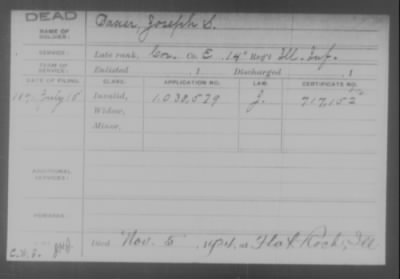 DEAD
NAME OF SOLDIER: Joseph S.
SERVICE: Late rank, Co. E, 14" Reg't Ill. Inf.
TERM OF SERVICE: Enlisted , 1 Discharged , 1
DATE OF FILING. CLASS. APPLICATION NO. LAW. CERTIFICATE NO.
July 15 Invalid, 1,038,529 J. 717,152
Widow,
Minor,
ADDITIONAL SERVICES:
REMARKS:
Died Nov. 5, 1924, at Flat Rock, Ill